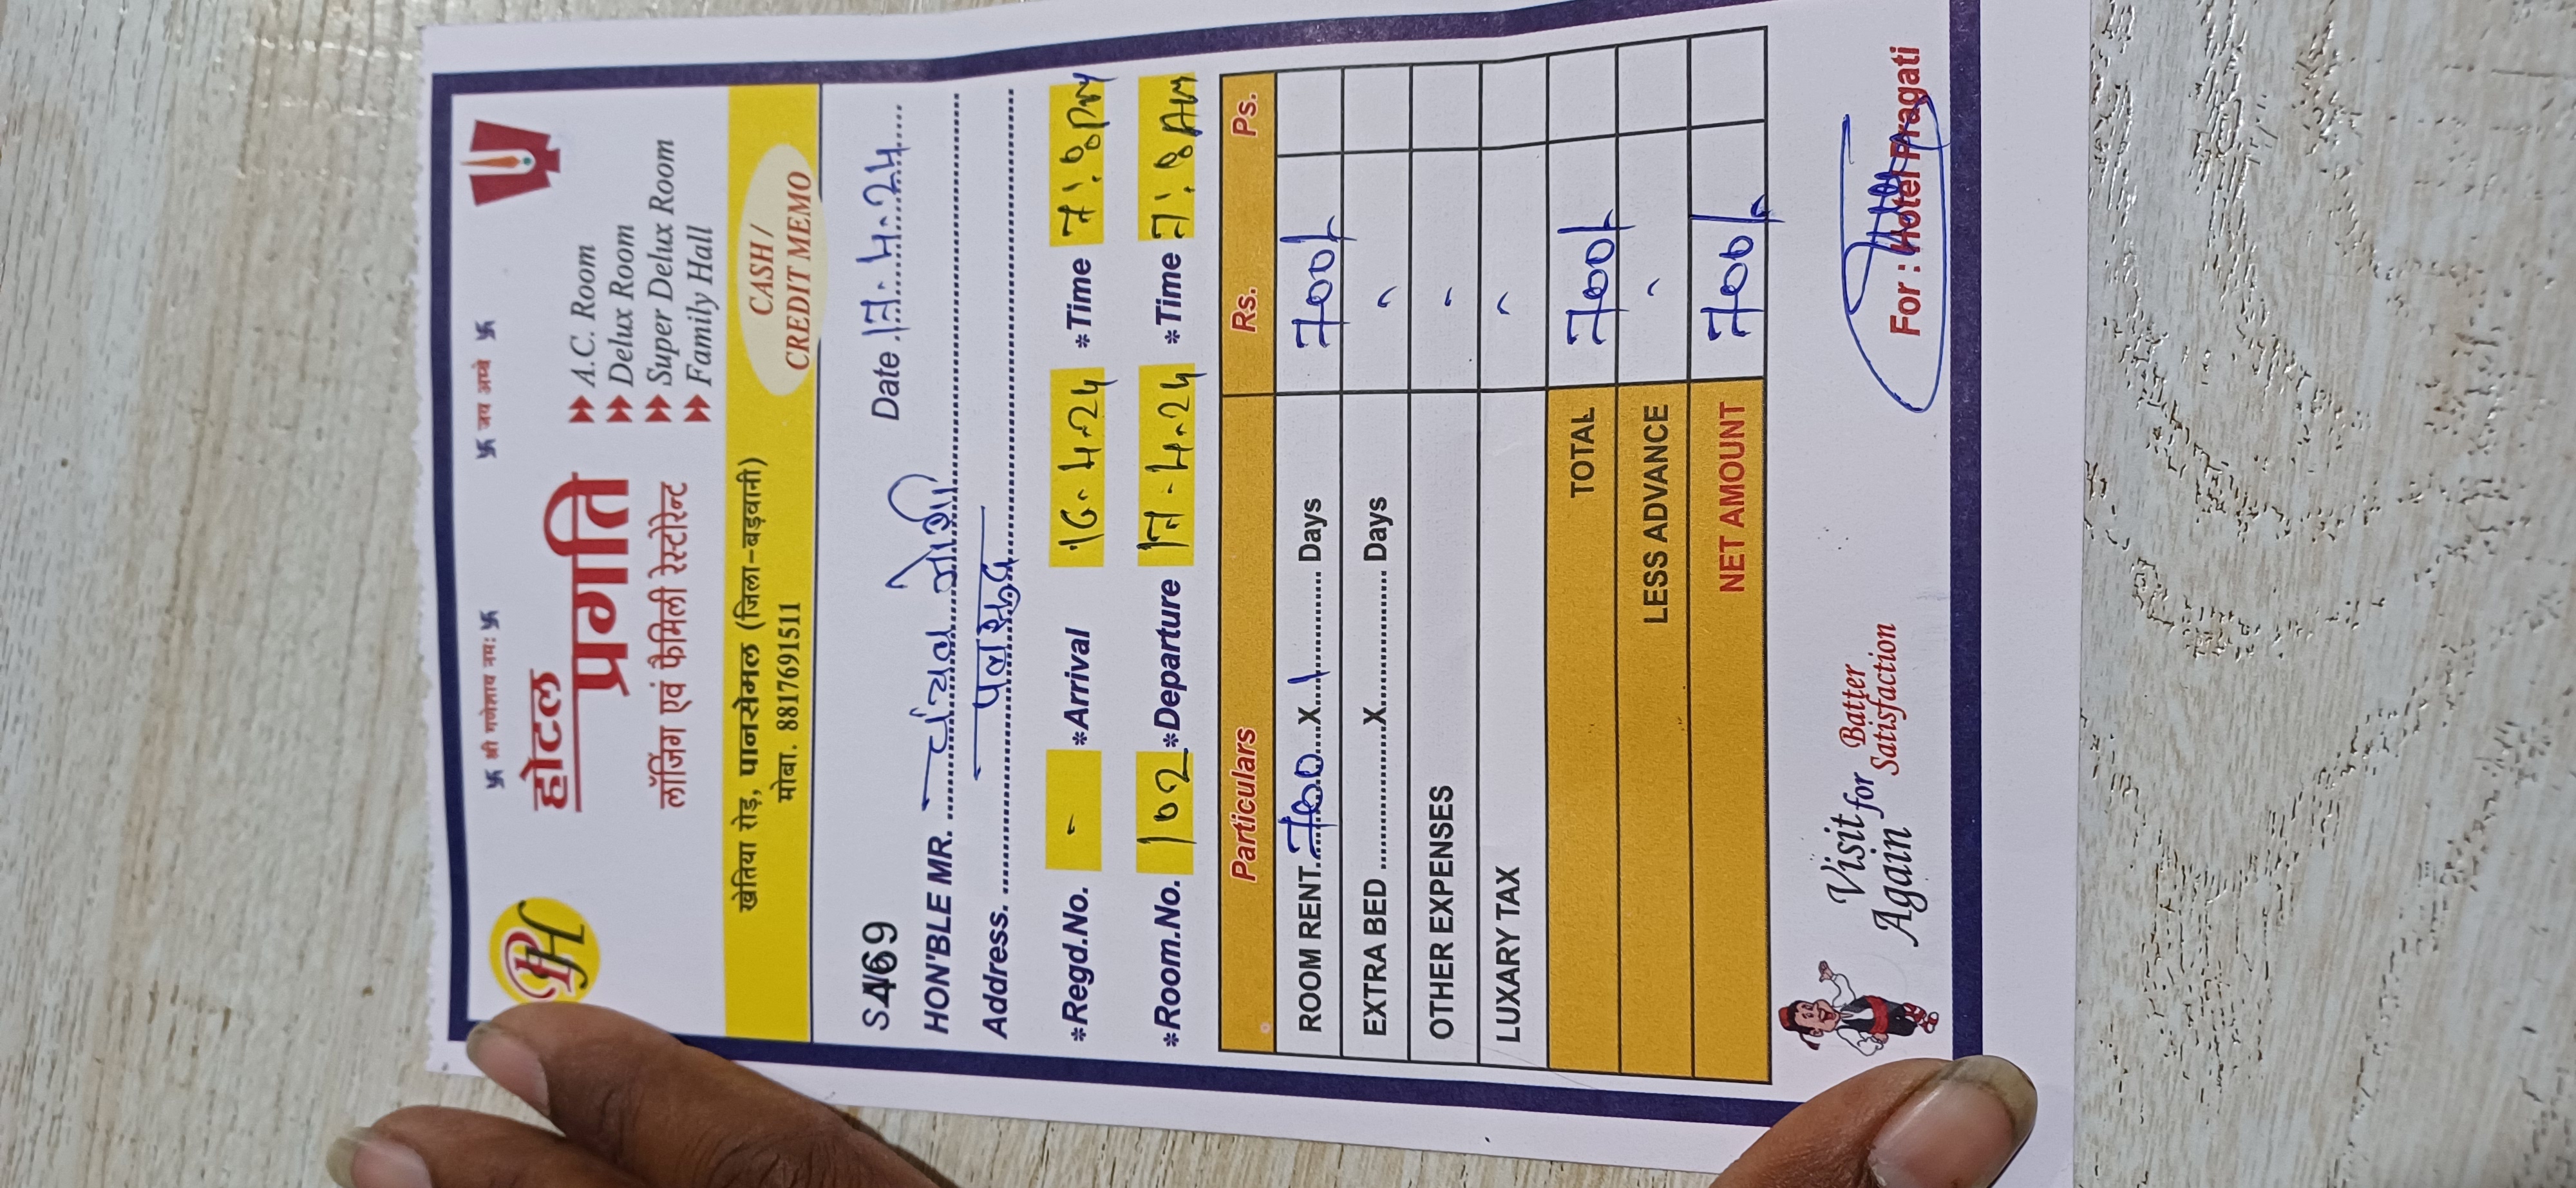 卐 श्री गणेशाय नमः 卐 卐 जय अम्बे 卐
PH
होटल
प्रगति
लॉजिंग एवं फैमिली रेस्टोरेन्ट
A.C. Room
Delux Room
Super Delux Room
Family Hall
खेतिया रोड़, पानसेमल (जिला-बड़वानी)
मोबा. 8817691511
CASH /
CREDIT MEMO
169 Date 17.4.24
HON'BLE MR. चंचल जोशी
Address. पलसूद
*Regd.No. - *Arrival 16.4.24 *Time
*Room.No. 102 *Departure 17-4-24 *Time
Particulars Rs. Ps.
ROOM RENT 700 X 1 Days 700/-
EXTRA BED X Days -
OTHER EXPENSES -
LUXARY TAX -
TOTAL 700/-
LESS ADVANCE -
NET AMOUNT 700/-
Visit for Batter
Again Satisfaction
For : Hotel Pragati